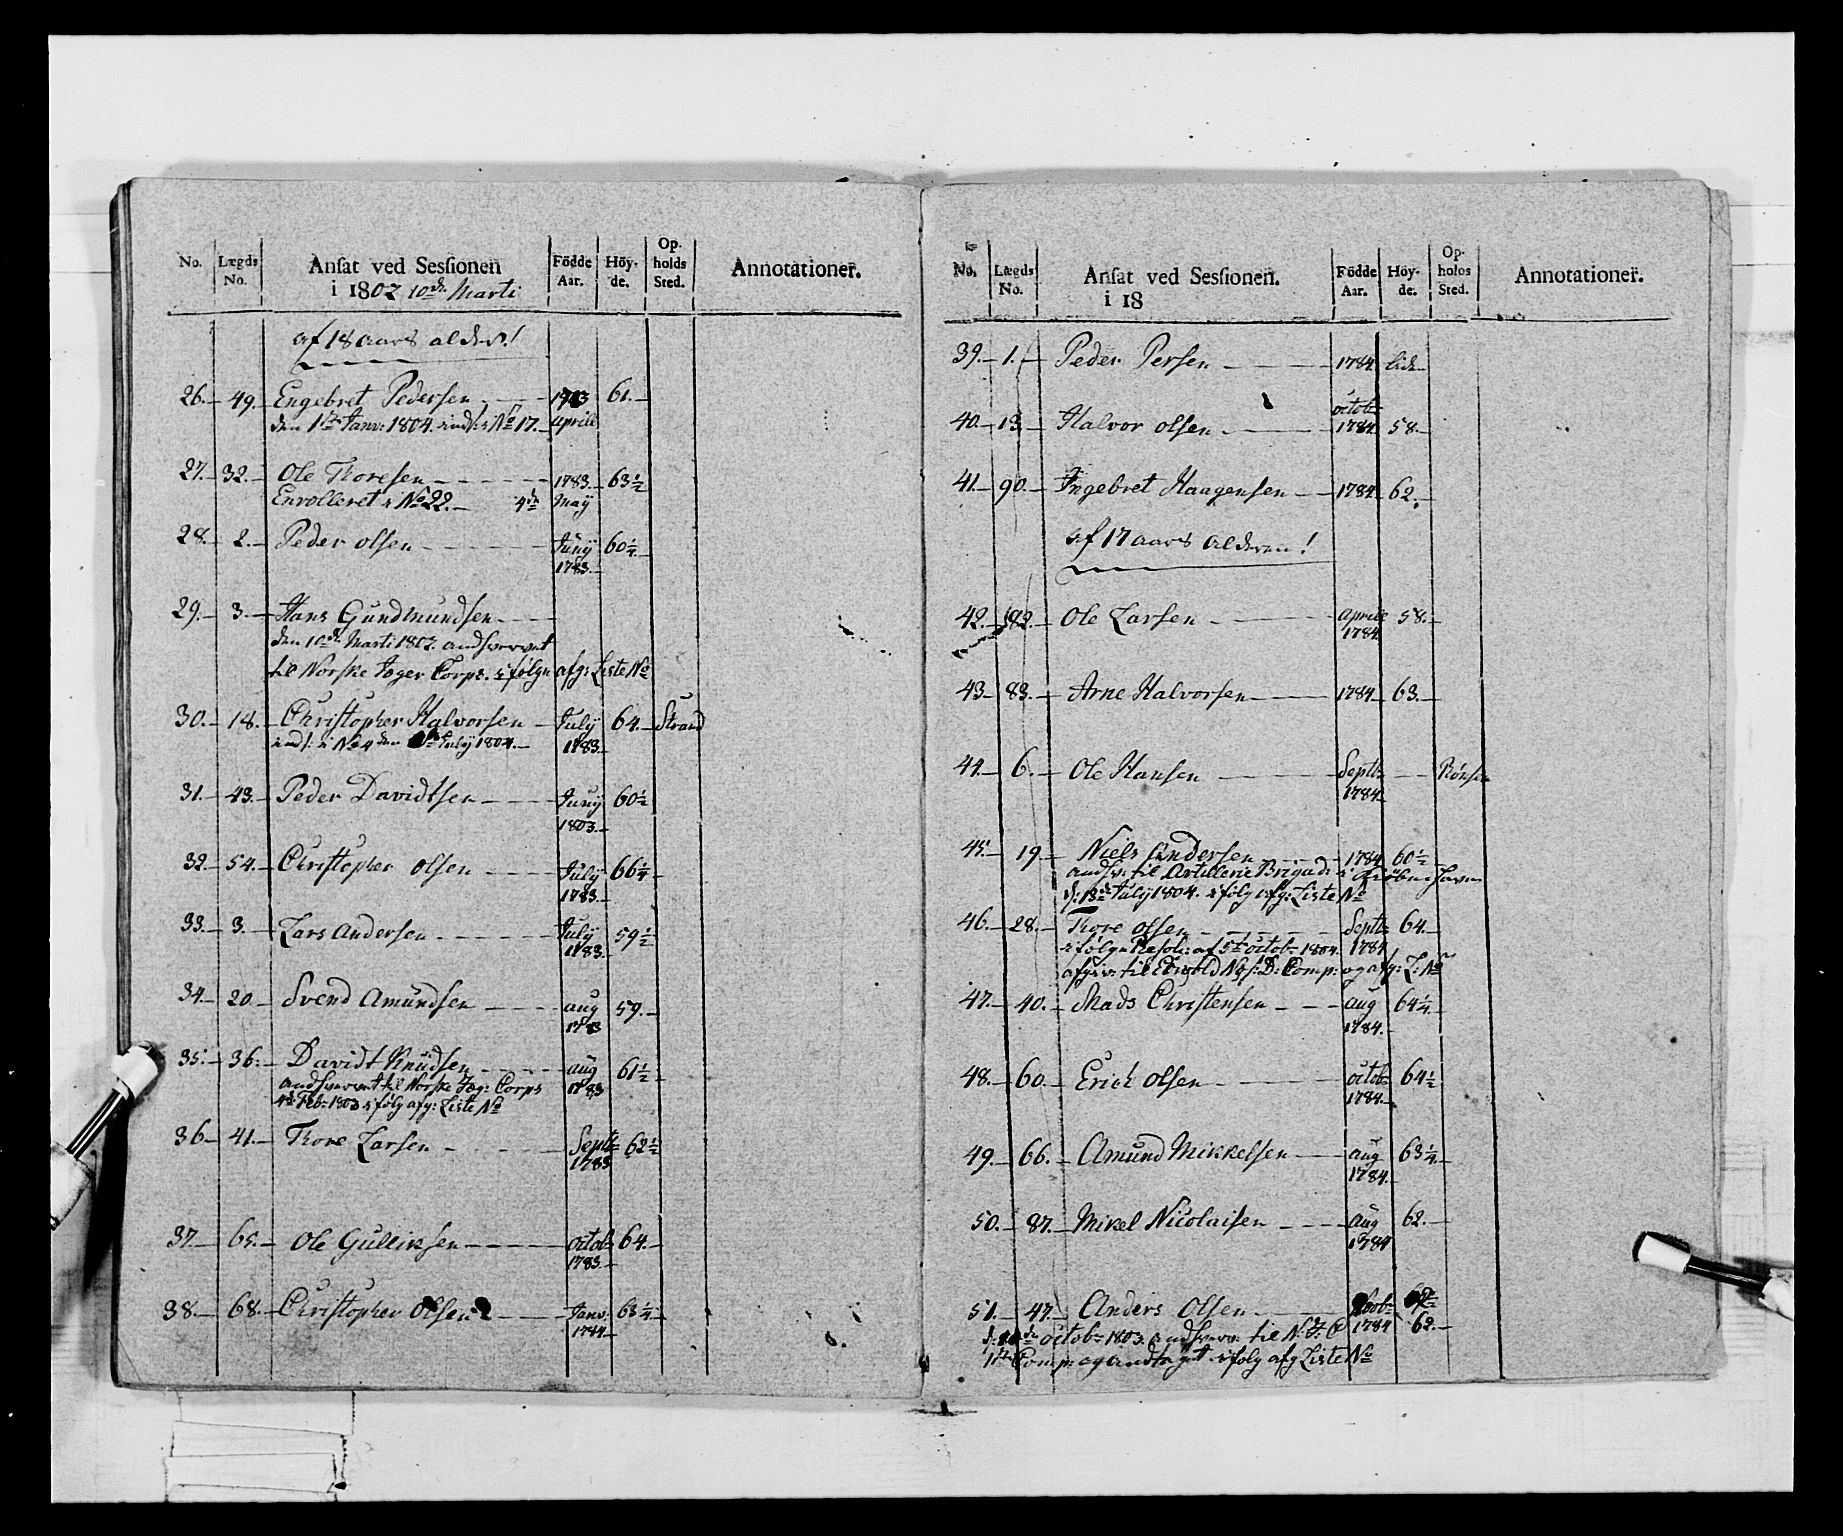 No. Lægds No. Ansat ved Sessionen i 1802 10de Marti Födde Aar. Höyde. Opholds Sted. Annotationer.
af 18 aars alder!
26. 49. Engebret Pedersen 1783 61.
den 1te Janv: 1804. inds: i No 17. Aprill
27. 32. Ole Thoresen 1783. 63½
Enrolleret i No 22. 4de May
28. 2. Peder Olsen Juny 1783. 60¼
29. 3. Hans Gundmundsen
den 10de Marti 1802. andhvervet
til Norske Jæger Corps. ifølge afg: Liste No
30. 18. Christopher Halvorsen July 1783. 64. Strand
inds: i No 4 den July 1804.
31. 43. Peder Davidtsen Juny 1803. 60½
32. 54. Christopher Olsen July 1783. 66¼
33. 3. Lars Andersen July 1783. 59½
34. 20. Svend Amundsen aug 1783 59.
35. 36. Davidt Knudsen aug 1783 61½
andhvervet til Norske Jæg: Corps
4de Feb: 1803 ifølg afg: Liste No
36. 41. Thore Larsen Septb 1783 62½
37. 65. Ole Gulliksen Octob 1783. 64.
38. 68. Christopher Olsen Janv: 1784. 63¼
No. Lægds No. Ansat ved Sessionen. i 18 Födde Aar. Höyde. Opholds Sted. Annotationer.
39. 1. Peder Persen 1784. lide
40. 13. Halvor Olsen octob 1784. 58.
41. 90. Ingebret Haagensen 1784. 62.
af 17 aars alderen!
42. 182. Ole Larsen Aprill 1784. 58.
43. 83. Arne Halvorsen 1784 63.
44. 6. Ole Hansen Septb 1784. Rönsen
45. 19. Niels Andersen 1784 60½
andhv: til Artillerie Brigad: i Kiøbenhavn
d: 13de July 1804. ifølg afg: Liste No
46. 28. Thore Olsen Septb 1784 64.
ifølge Resol: af 5te octob 1804.
afgiv: til Edsvold Comp: og afg: L: No
47. 40. Mads Christensen aug 1784. 64¼
48. 60. Erich Olsen octob 1784. 64½
49. 66. Amund Mikkelsen aug 1784. 63¼
50. 87. Mikel Nicolaisen Aug 1784 62.
51. 47. Anders Olsen 1784 62.
octob 1803. andhverv: til N: J: C
1te Comp: og andtaget ifølg afg Liste No